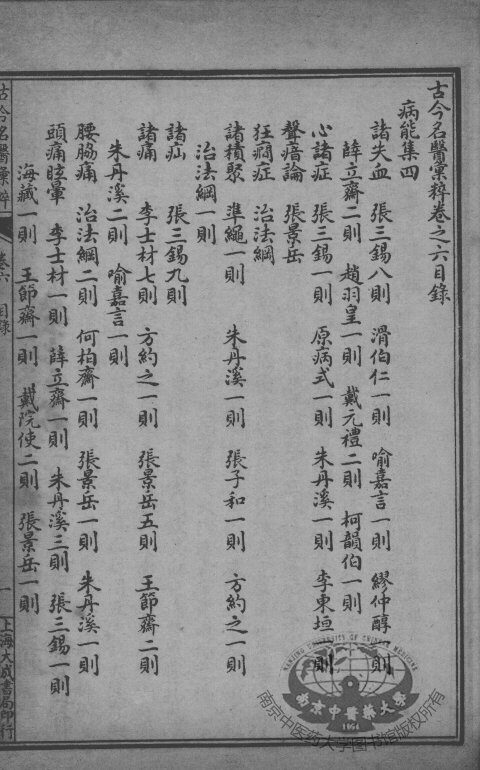 古今名醫彙粹卷之六目錄
病能集四
諸失血 張三錫八則 滑伯仁一則 喻嘉言一則 繆仲醇一則
薛立齋二則 趙羽皇一則 戴元禮二則 柯韻伯一則
心諸症 張三錫一則 原病式一則 朱丹溪一則 李東垣一則
聲瘖論 張景岳
狂癎症 治法綱
諸積聚 準繩一則 朱丹溪一則 張子和一則 方約之一則
治法綱一則
諸疝 張三錫九則
諸痛 李士材七則 方約之一則 張景岳五則 王節齋二則
朱丹溪二則 喻嘉言一則
腰脇痛 治法綱二則 何柏齋一則 張景岳一則 朱丹溪一則
頭痛眩暈 李士材一則 薛立齋一則 朱丹溪三則 張三錫一則
海藏一則 王節齋一則 戴院使二則 張景岳一則
古今名醫彙粹 卷六 目錄 一 上海大成書局印行
NANJING UNIVERSITY OF CHINESE MEDICINE
南京中醫藥大學
1954
南京中医药大学图书馆版权所有